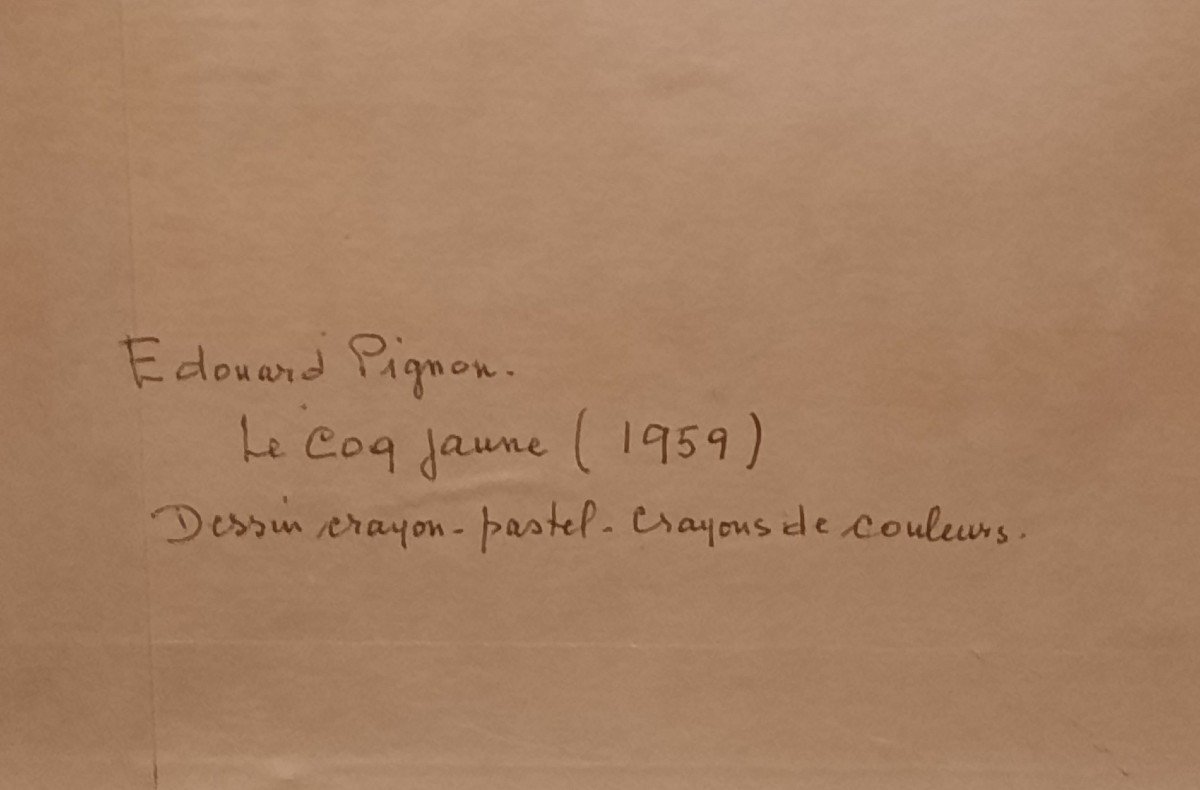 Edouard Pignon.
Le Coq jaune (1959)
Dessin crayon - pastel - Crayons de couleurs.